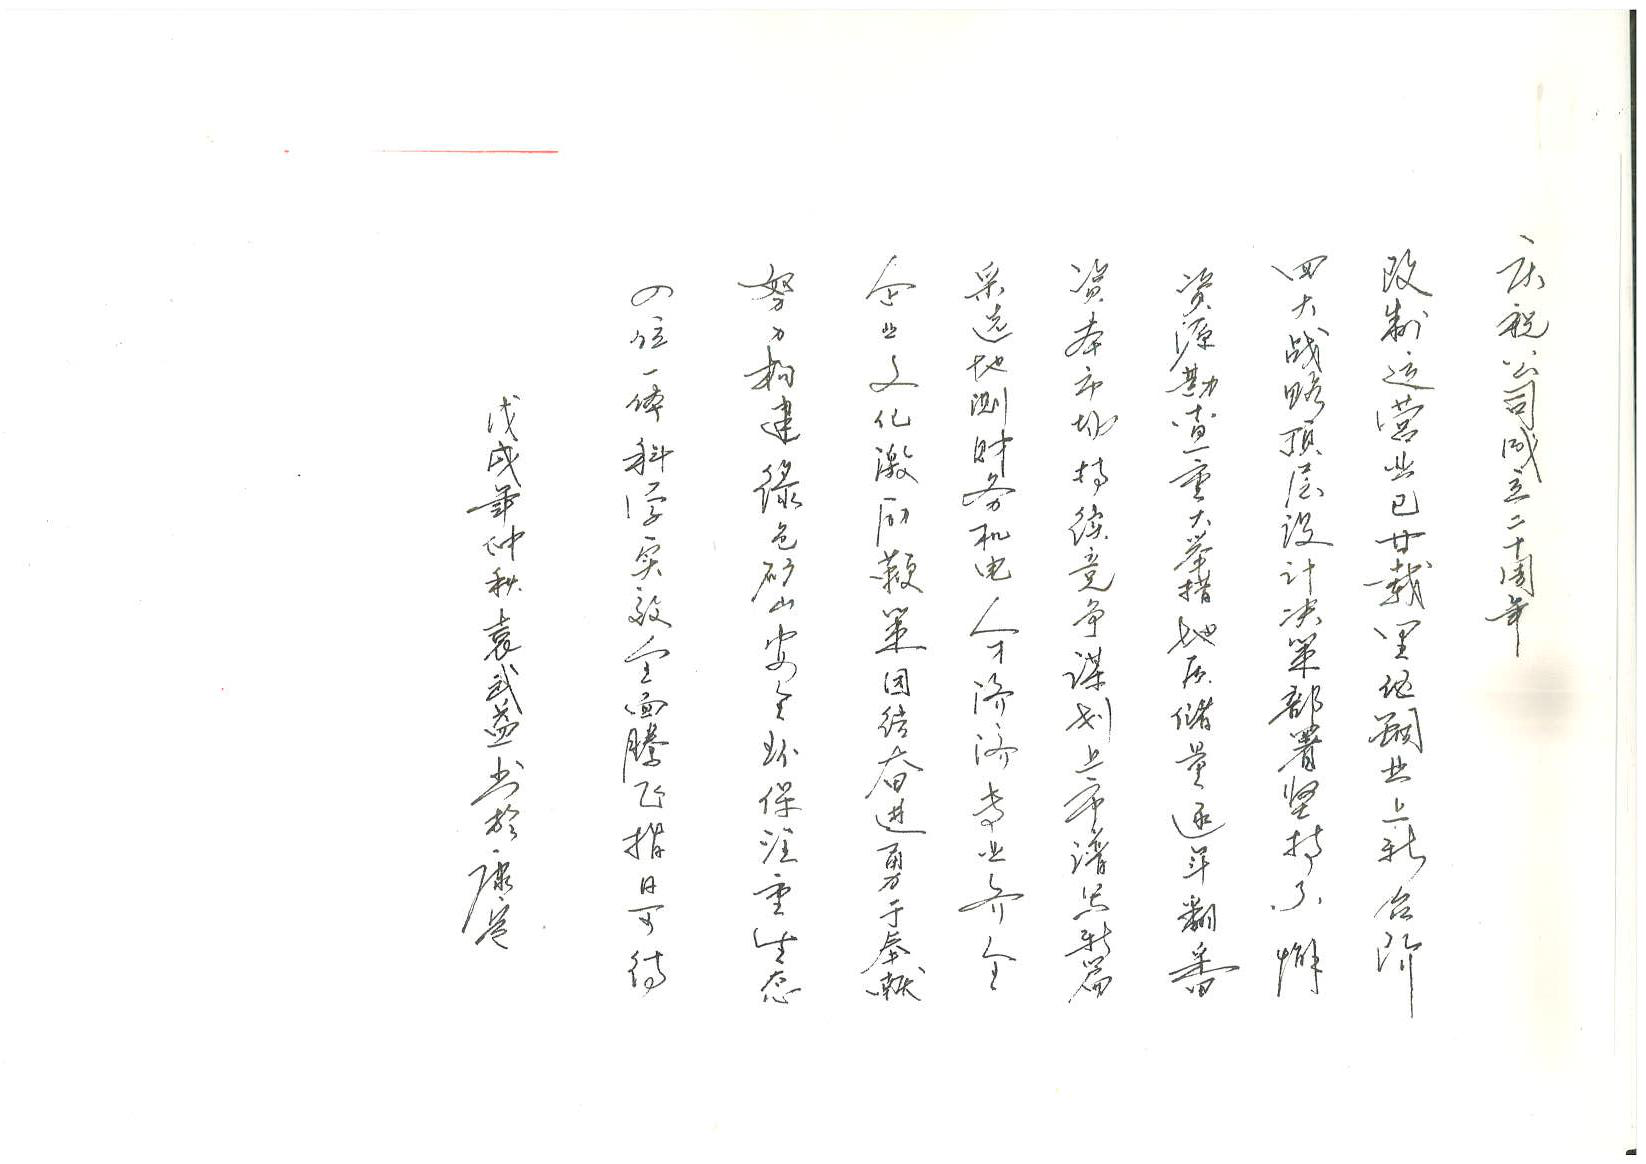 庆祝公司成立二十周年
改制运营业已廿载里程翻业上新台阶
四大战略顶层设计决策部署坚持不懈
资源勘查重大举措地质储量逐年翻番
资本市场持续竞争谋划上市谱写新篇
采选地测财务机电人才济济专业齐全
企业文化激励鞭策团结奋进勇于奉献
努力构建绿色矿山安全环保注重生态
四位一体科学实效全面腾飞指日可待
戊戌年仲秋袁武益书於康定